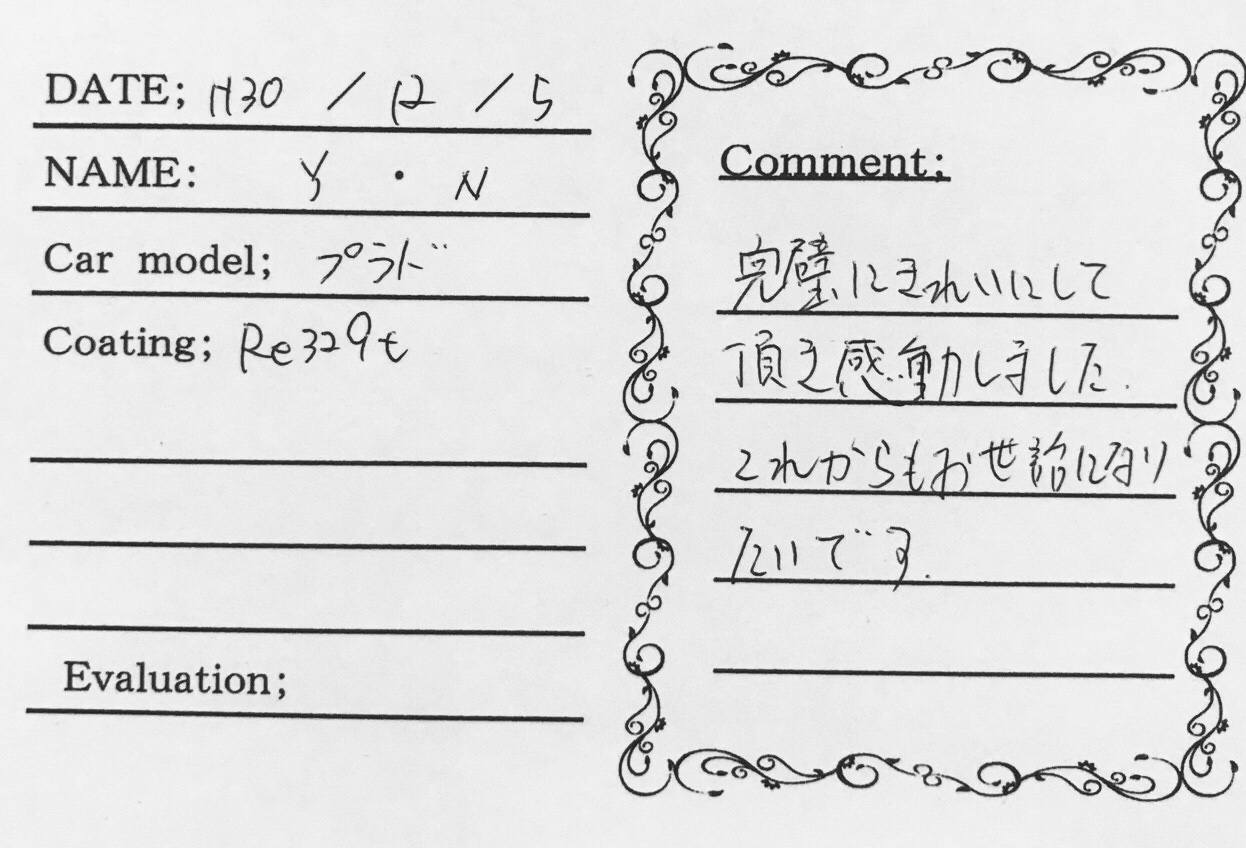 DATE; H30 / 12 / 5
NAME: Y ・ N
Car model; プラド
Coating; Re329t
Evaluation;
Comment;
完璧にきれいにして
頂き感動しました.
これからもお世話になり
たいです.